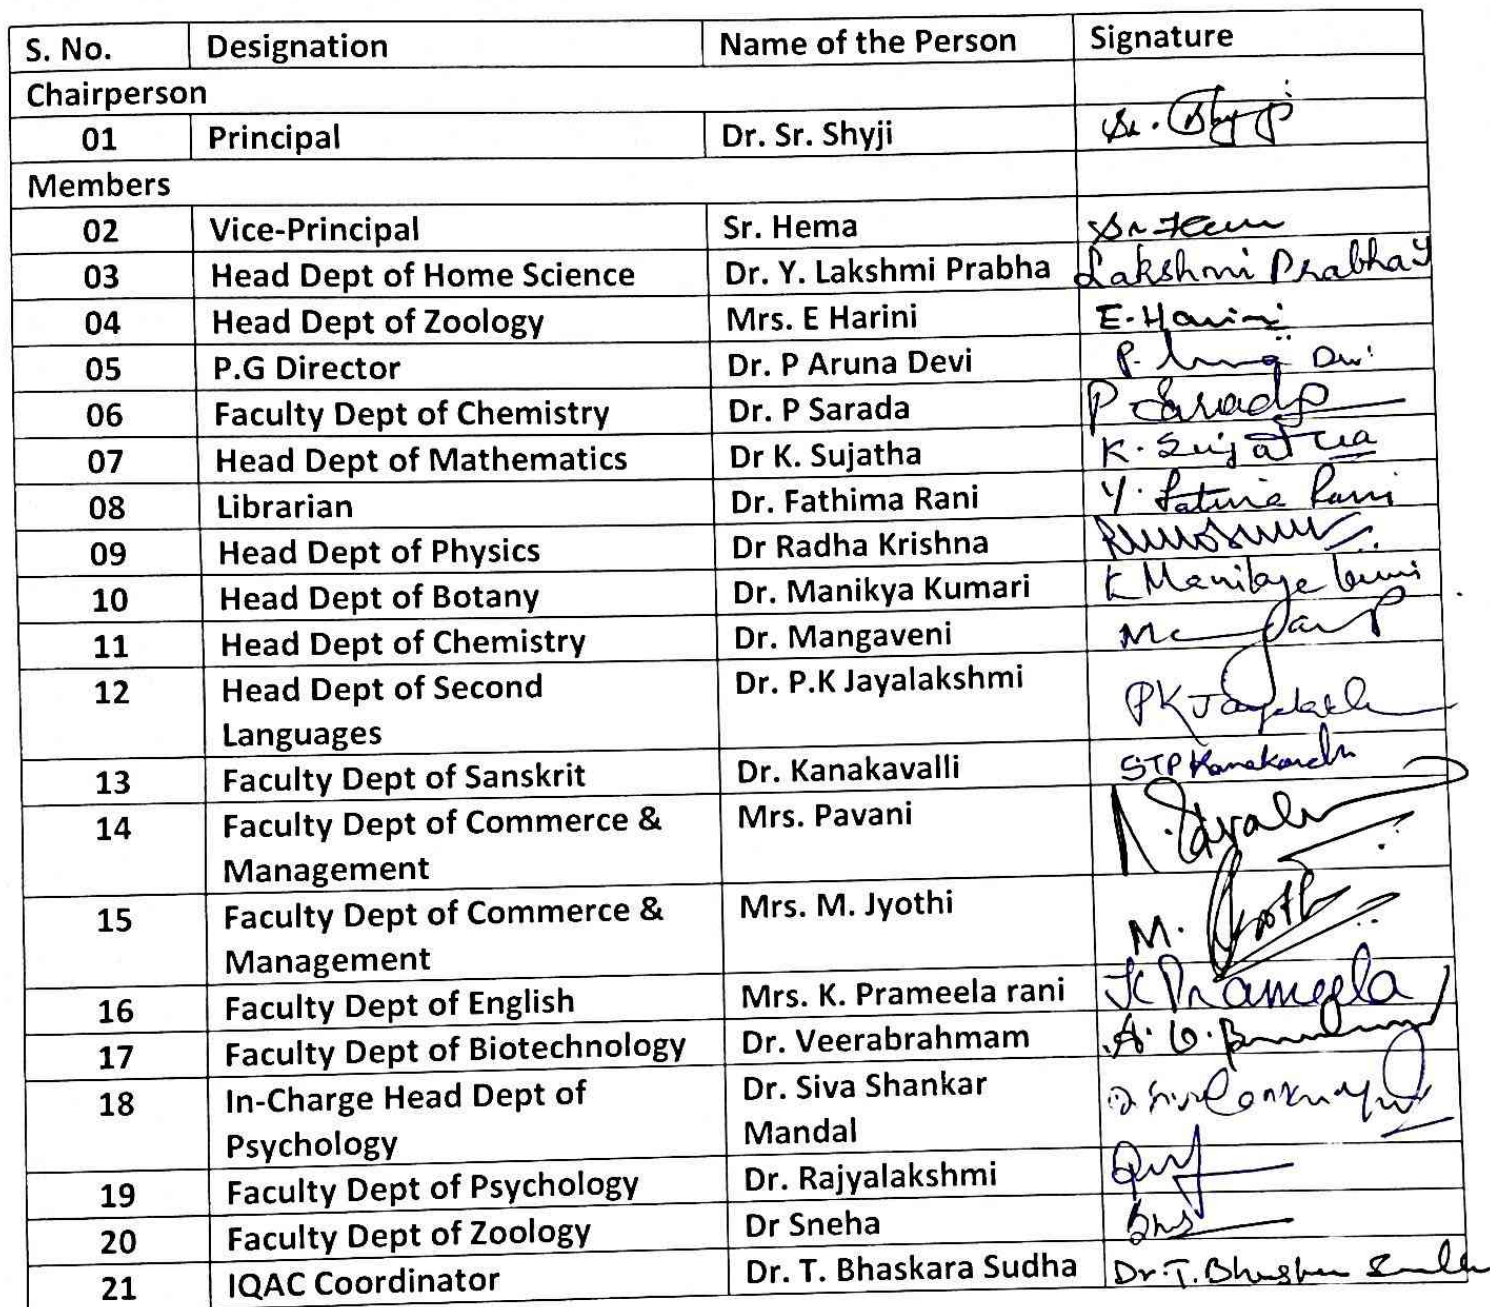 S. No. Designation Name of the Person Signature
Chairperson
01 Principal Dr. Sr. Shyji Sr. Shyji
Members
02 Vice-Principal Sr. Hema Sr. Hema
03 Head Dept of Home Science Dr. Y. Lakshmi Prabha Lakshmi Prabha Y
04 Head Dept of Zoology Mrs. E Harini E. Harini
05 P.G Director Dr. P Aruna Devi P.
06 Faculty Dept of Chemistry Dr. P Sarada P Sarada
07 Head Dept of Mathematics Dr K. Sujatha K. Sujatha
08 Librarian Dr. Fathima Rani Y. Fatima Rani
09 Head Dept of Physics Dr Radha Krishna
10 Head Dept of Botany Dr. Manikya Kumari K Manikya
11 Head Dept of Chemistry Dr. Mangaveni
12 Head Dept of Second Dr. P.K Jayalakshmi PK
Languages
13 Faculty Dept of Sanskrit Dr. Kanakavalli STP
14 Faculty Dept of Commerce & Mrs. Pavani
Management
15 Faculty Dept of Commerce & Mrs. M. Jyothi M. Jyothi
Management
16 Faculty Dept of English Mrs. K. Prameela rani K Prameela
17 Faculty Dept of Biotechnology Dr. Veerabrahmam A. V.
18 In-Charge Head Dept of Dr. Siva Shankar
Psychology Mandal
19 Faculty Dept of Psychology Dr. Rajyalakshmi
20 Faculty Dept of Zoology Dr Sneha
21 IQAC Coordinator Dr. T. Bhaskara Sudha Dr. T.